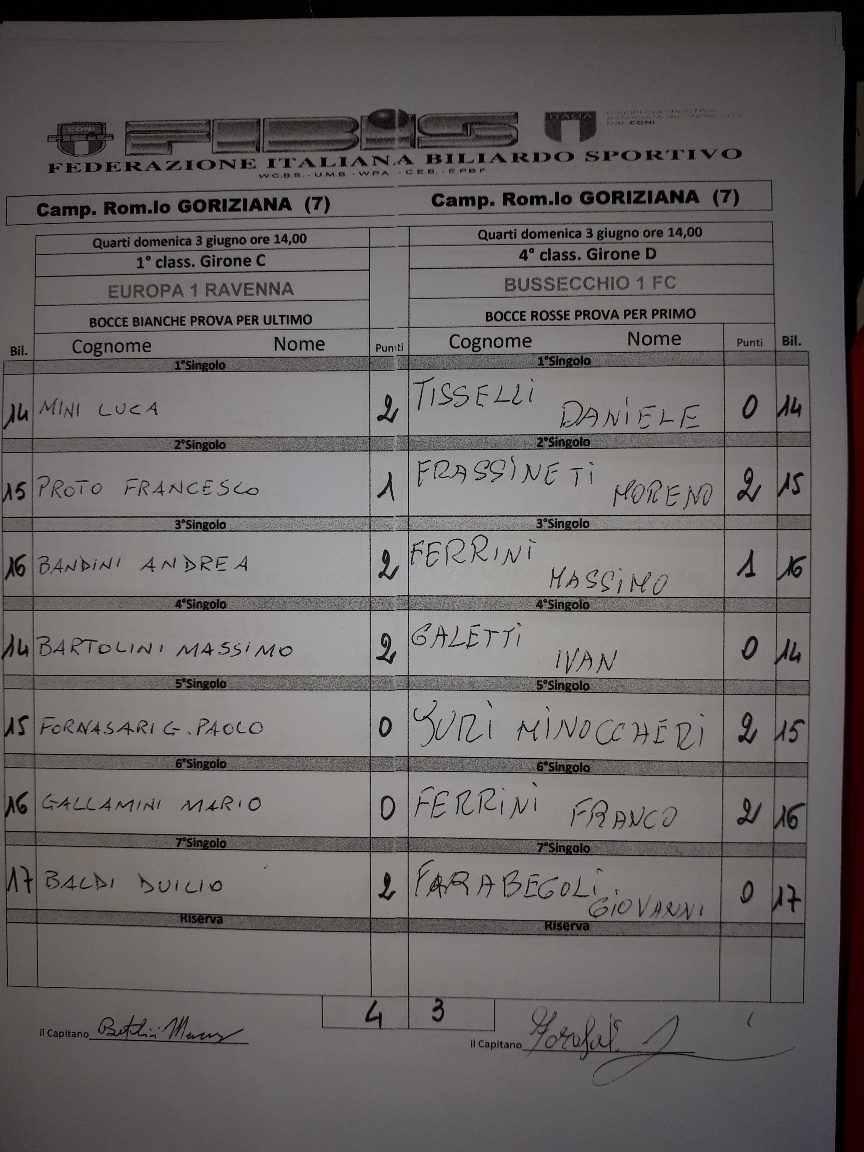 CONI
FIBiS
ITALIA
DISCIPLINA SPORTIVA
ASSOCIATA RICONOSCIUTA
DAL CONI
FEDERAZIONE ITALIANA BILIARDO SPORTIVO
W.C.B.S. - U.M.B. - WPA - C.E.B. - E.P.B.F
Camp. Rom.lo GORIZIANA (7) Camp. Rom.lo GORIZIANA (7)
Quarti domenica 3 giugno ore 14,00 Quarti domenica 3 giugno ore 14,00
1° class. Girone C 4° class. Girone D
EUROPA 1 RAVENNA BUSSECCHIO 1 FC
BOCCE BIANCHE PROVA PER ULTIMO BOCCE ROSSE PROVA PER PRIMO
Bil. Cognome Nome Punti Cognome Nome Punti Bil.
1°Singolo 1°Singolo
14 MINI LUCA 2 TISSELLI DANIELE 0 14
2°Singolo 2°Singolo
15 PROTO FRANCESCO 1 FRASSINETI MORENO 2 15
3°Singolo 3°Singolo
16 BANDINI ANDREA 2 FERRINI MASSIMO 1 16
4°Singolo 4°Singolo
14 BARTOLINI MASSIMO 2 GALETTI IVAN 0 14
5°Singolo 5°Singolo
15 FORNASARI G. PAOLO 0 YURI MINOCCHERI 2 15
6°Singolo 6°Singolo
16 GALLAMINI MARIO 0 FERRINI FRANCO 2 16
7°Singolo 7°Singolo
17 BALDI DUILIO 2 FARABEGOLI GIOVANNI 0 17
Riserva Riserva
4 3
il Capitano il Capitano